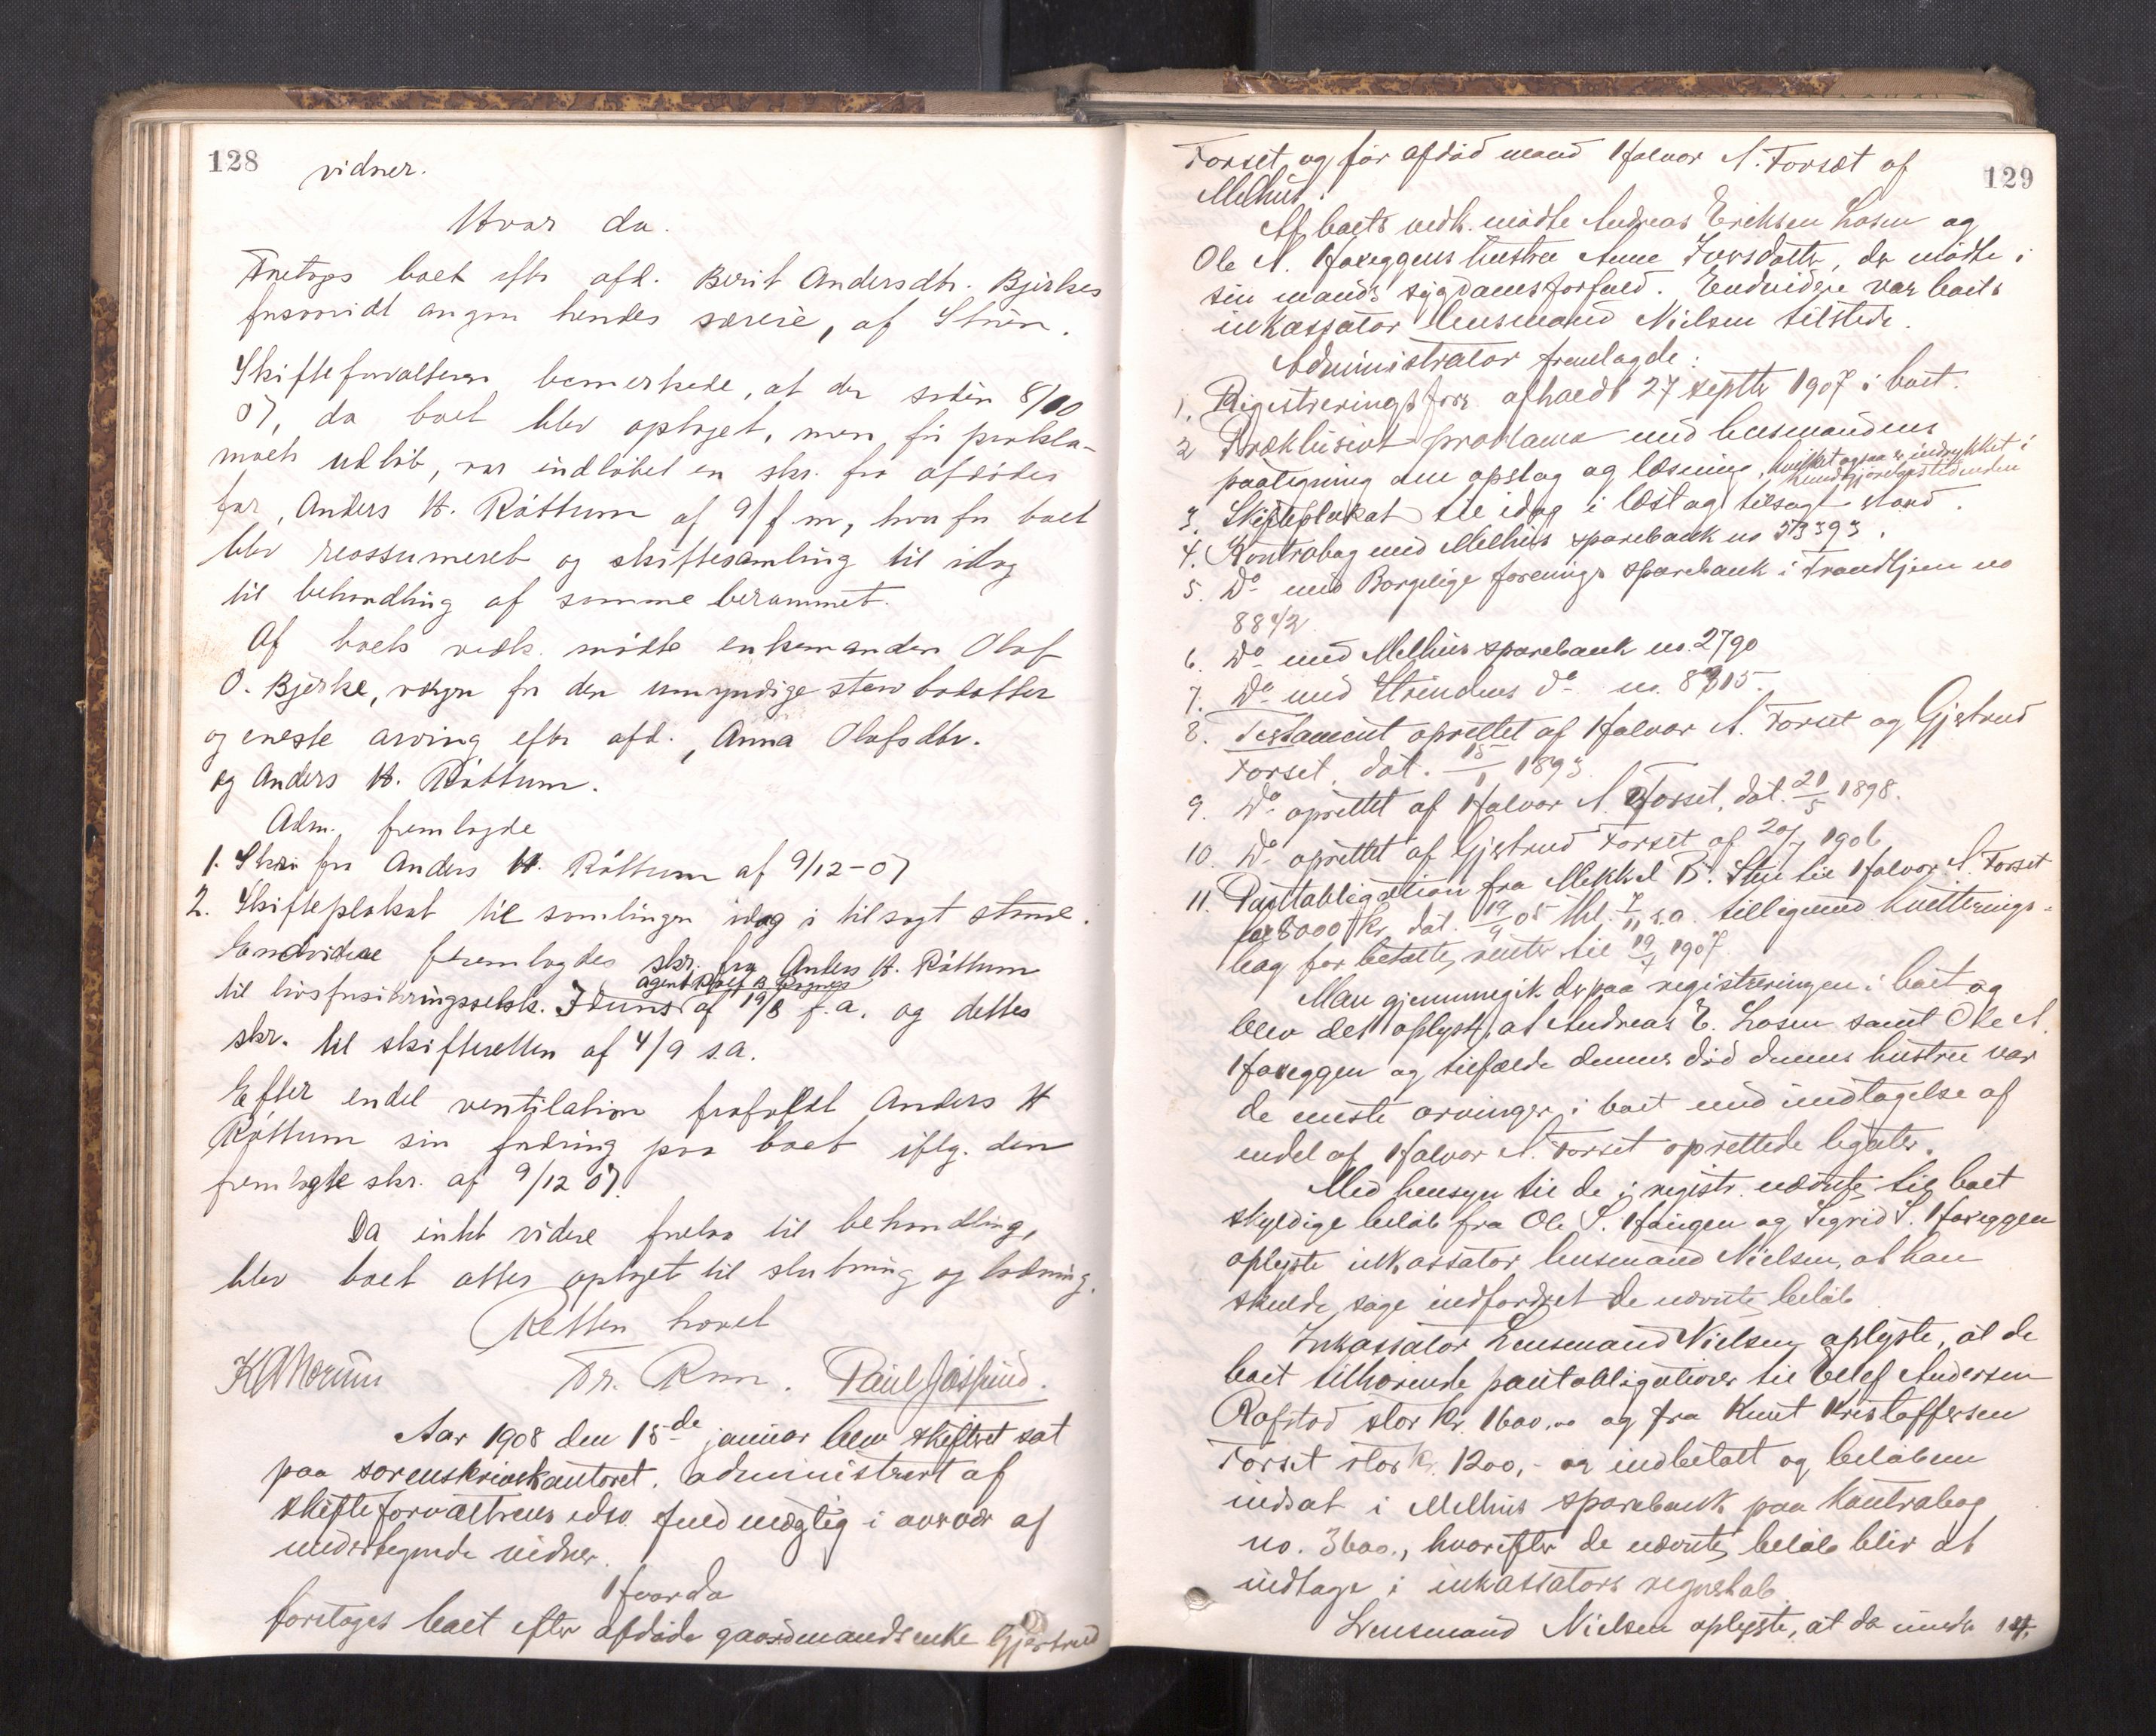 128
vidner.
Hvor da.
Foretoges boet efter afd. Berit Andersdtr. Bjerkes
forsaavidt angaar hendes særeie, af Stören.
Skifteforvalteren bemerkede, at der siden 8/10
07, da boet blev optaget, men för prokla-
maets udlöb, var indlöbet en skr. fra afdödes
far, Anders H. Röttum af 9/ f m, hvorfor boet
blev reassumeret og skiftesamling til idag
til behandling af samme berammet.
Af boets vedk. mödte enkemanden Olaf
O. Bjerke, værge for den umyndige
og eneste arving efter afd., Anna Olafsdtr.
og Anders H. Röttum.
Adm. fremlagde
1. Skr. fra Anders H. Röttum af 9/12-07
2. Skifteplakat til samlingen idag i tilsagt stand.
Endvidere fremlagdes skr. fra Anders H. Röttum
til livsforsikringsselsk. Iduns agent af 19/8 f.a. og dettes
skr. til skifteretten af 4/9 s.a.
Efter endel ventilation frafaldt Anders H
Röttum sin fordring paa boet iflg. den
fremlagte skr. af 9/12 07.
Da intet videre forelaa til behandling,
blev boet atter optaget til slutning og lodning.
Retten hævet
Fr. Rnn. Paul Jaspund.
Aar 1908 den 15de januar blev skifteret sat
paa sorenskriverkontoret, administrert af
skifteforvalterens edsv. fuldmægtig i overvær af
undertegnede vidner.
Hvorda
foretoges boet efter afdöde gaardmandsenke Gjertrud
129
Forset, og för afdöd mand Halvor A. Forset af
Melhus.
Af boets vedk. mödte Andreas Eriksen Losen og
Ole A. Haveggens hustru Anne Iversdatter, der mödte i
sin mands sygdomsforfald. Endvidere var boets
inkassator lensmand Nielsen tilstede.
Administrator fremlagde:
1. Registreringsforr. afholdt 27 septbr 1907 i boet.
2 Præklusivt proklama med lensmandens
paategning om opslag og læsning, hvilket ogsaa er indrykket i
kundgjörelsestidenden
3. Skifteplakat til idag i læst og tilsagt stand.
4. Kontrabog med Melhus sparebank no 3393.
5. Do med Borgelige forenings sparebank i Trondhjem no
8842
6. Do med Melhus sparebank no. 2790
7. Do med Strindens do no. 8315.
8. Testament oprettet af Halvor A. Forset og Gjertrud
Forset, dat. 15/1 1893
9. Do oprettet af Halvor A. Forset, dat. 21/5 1898.
10. Do oprettet af Gjertrud Forset af 20/7 1906
11. Panteobligation fra Mikkel B. Stie til Halvor A. Forset
for 8000 kr dat. 19/9 05 thl. 7/11 s.a. tilligemed kvitterings-
bog for betalte renter til 19/4 1907.
Man gjennemgik derpaa registreringen i boet og
blev det oplyst, at Andreas E. Losen samt Ole A.
Haveggen og tilfælde dennes död dennes hustru var
de eneste arvinger i boet med undtagelse af
endel af Halvor A. Forset oprettede legater.
Med hensyn til de i registr. nævnte til boet
skyldige belöb fra Ole S. Haugen og Sigrid S. Haveggen
oplyste inkassator lensmand Nielsen, at han
skulde söge indfordret de nævnte belöb
Inkassator Lensmand Nielsen oplyste, at de
boet tilhörende pantobligationer til Elef Andersen
Rafstad stor kr. 1600,oo og fra Knut Kristoffersen
Forset stor kr. 1200,- er indbetalt og belöbene
indsat i Melhus sparebank paa kontrabog
no. 3600., hvorefter de nævnte belöb blir at
indtage i inkassators regnskab.
Lensmand Nielsen oplyste, at de under